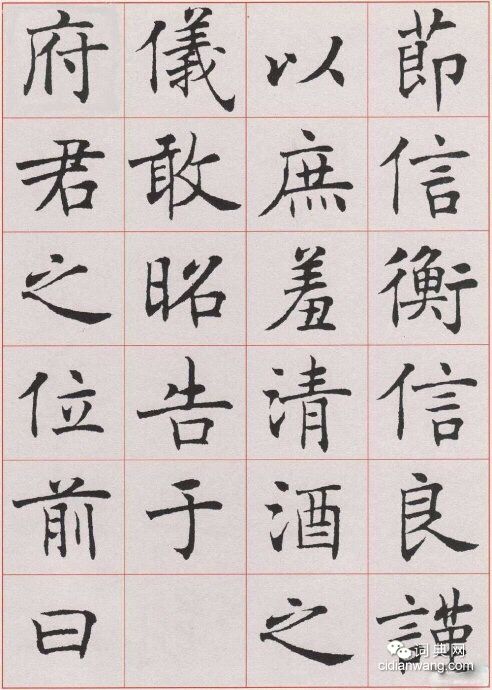 節信衡信良謹
以庶羞清酒之
儀敢昭告于
府君之位前曰
词典网
cidianwang.com